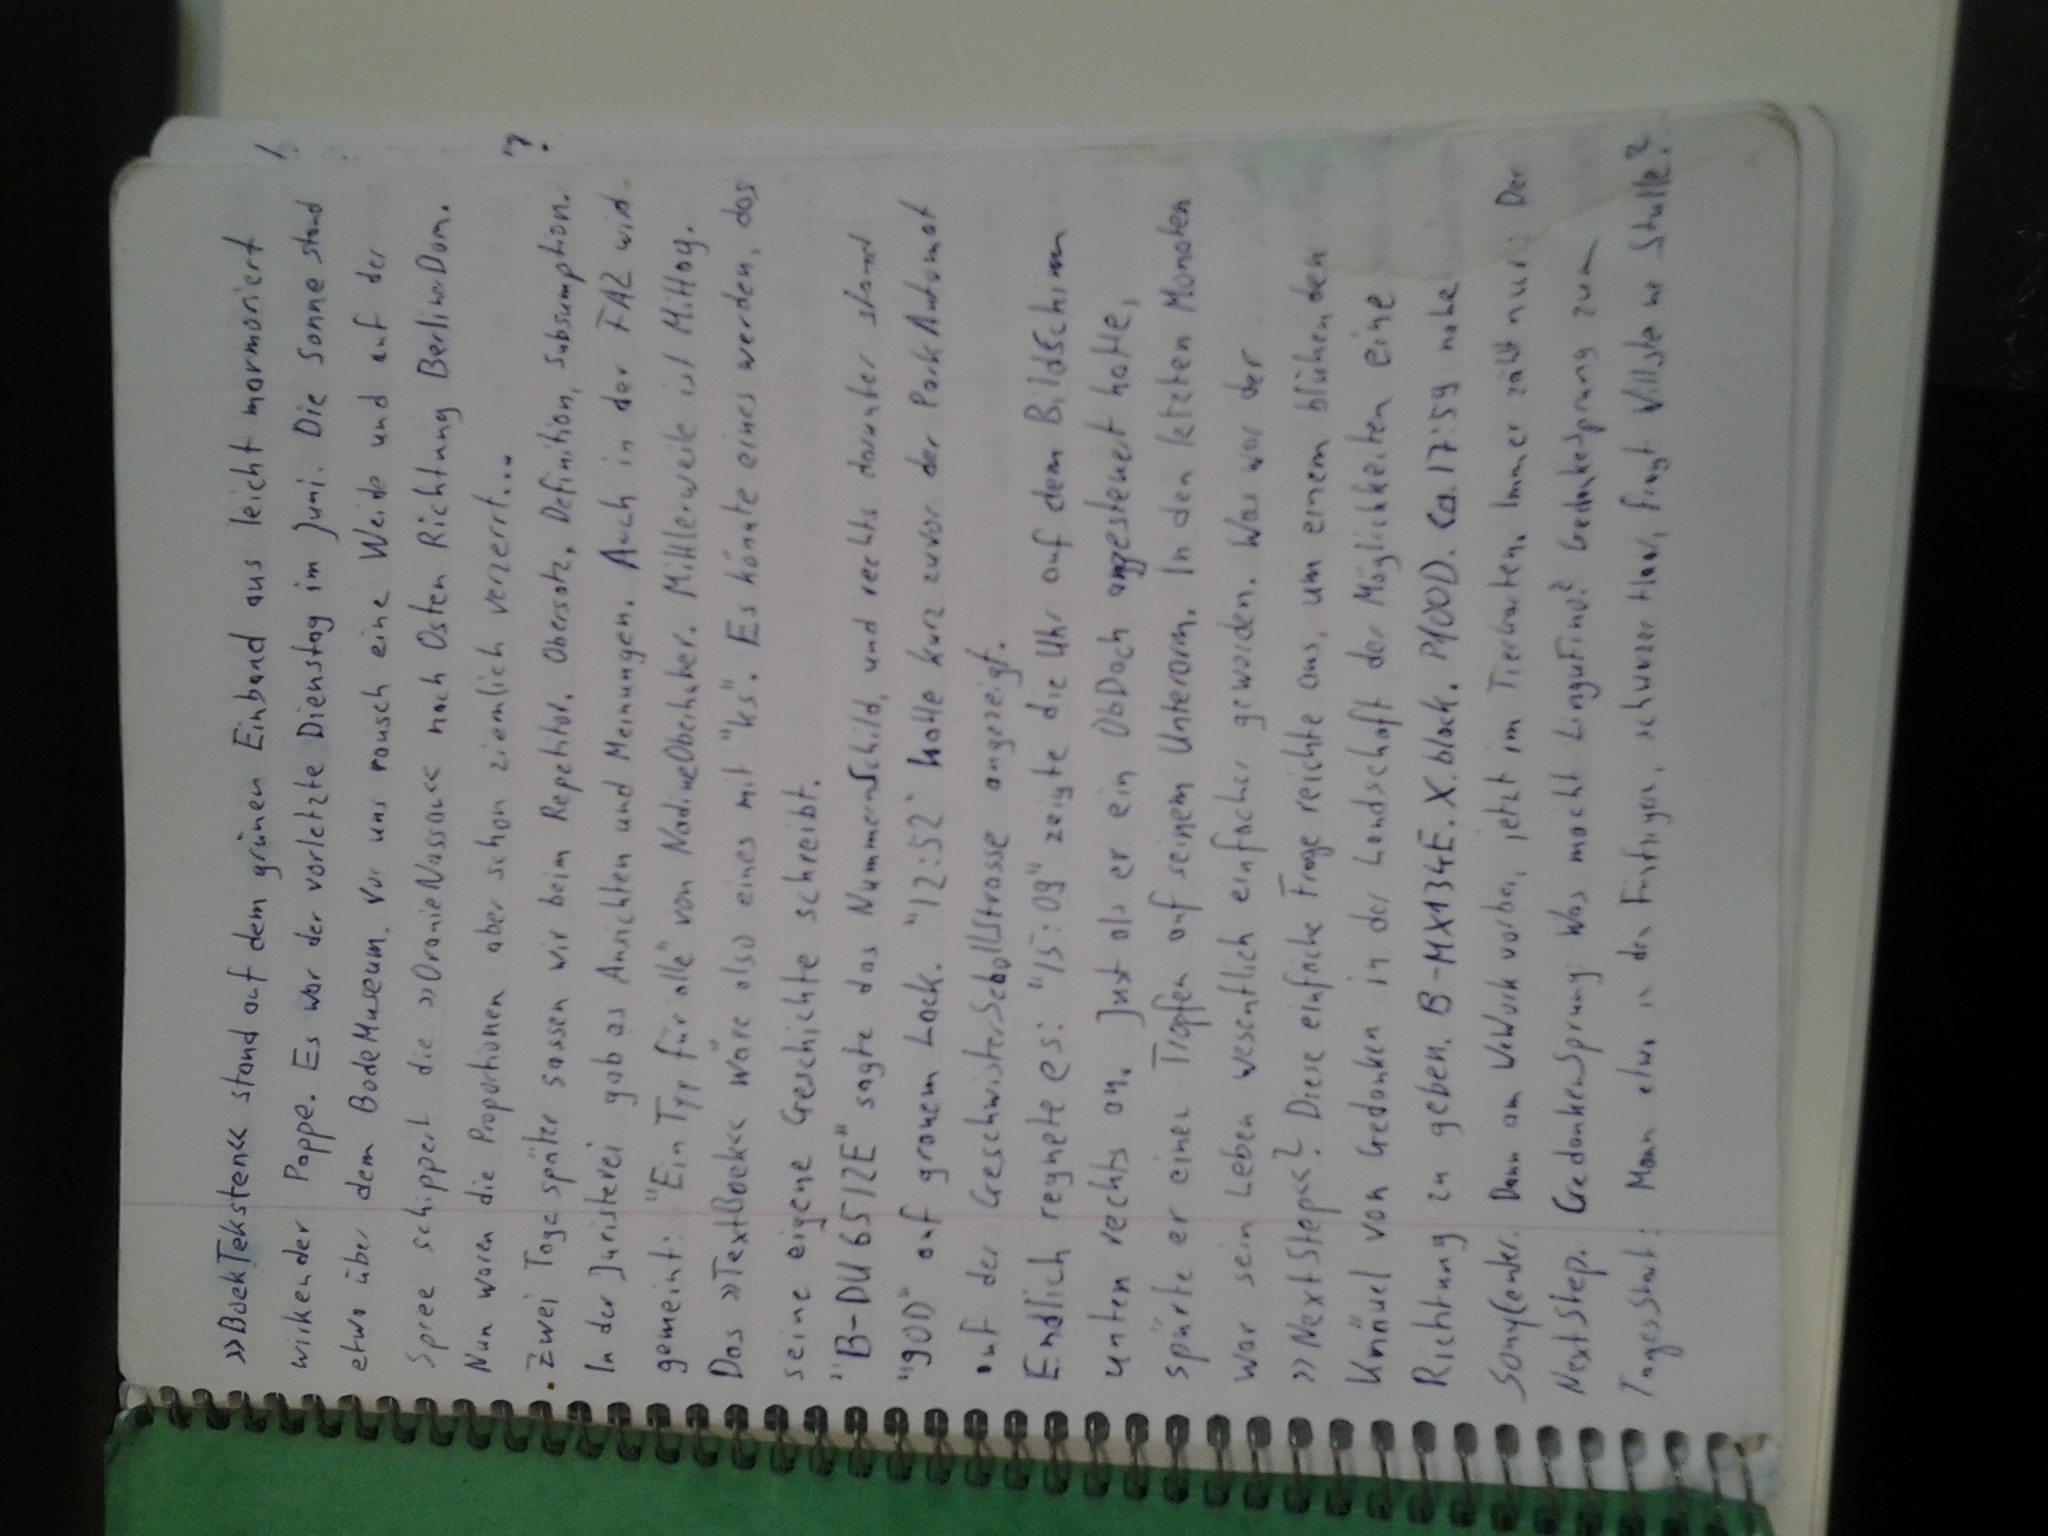 »BoekTeksten« stand auf dem grünen Einband aus leicht marmoriert
wirkender Pappe. Es war der vorletzte Dienstag im Juni. Die Sonne stand
etwa über dem BodeMuseum. Vor uns rausch eine Weide und auf der
Spree schippert die »OranieNassau« nach Osten Richtung BerlinerDom.
Nun waren die Proportionen aber schon ziemlich verzerrt...
Zwei Tage später sassen wir beim Repetitor. Obersatz, Definition, Subsumption.
In der Juristerei gab es Ansichten und Meinungen. Auch in der FAZ wird
gemeint: "Ein Typ für alle" von NadineOberhuber. Mittlerweile ist Mittag.
Das »TextBoek« wäre also eines mit "ks". Es könnte eines werden, das
seine eigene Geschichte schreibt.
"B-DU 6512E" sagte das NummernSchild, und rechts darunter stand
"90D" auf grauem Lack. "12:52" hatte kurz zuvor der ParkAutomat
auf der GeschwisterSchollStrasse angezeigt.
Endlich regnete es: "15:09" zeigte die Uhr auf dem BildSchirm
unten rechts an. Just als er ein ObDach angesteuert hatte,
spürte er einen Tropfen auf seinem Unterarm. In den letzten Monaten
war sein Leben wesentlich einfacher geworden. Was war der
»NextStep«? Diese einfache Frage reichte aus, um einem blühenden
Knäuel von Gedanken in der Landschaft der Möglichkeiten eine
Richtung zu geben. B-MX134E. X. black. P100D. Ca. 17:59 nahe
SonyCenter. Dann am WeWork vorbei, jetzt im TierGarten. Immer zählt nur: Der
NextStep. GedankenSprung: Was macht LinguFino? Gedankesprung zum
TagesStart: Mann etwa in den Fünfzigern, schwarzer Haar, fragt Villste ne Stulle?
!
"?